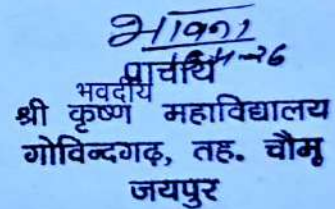 भावना
प्राचार्य
भवदीय
श्री कृष्ण महाविद्यालय
गोविन्दगढ़, तह. चौमू
जयपुर